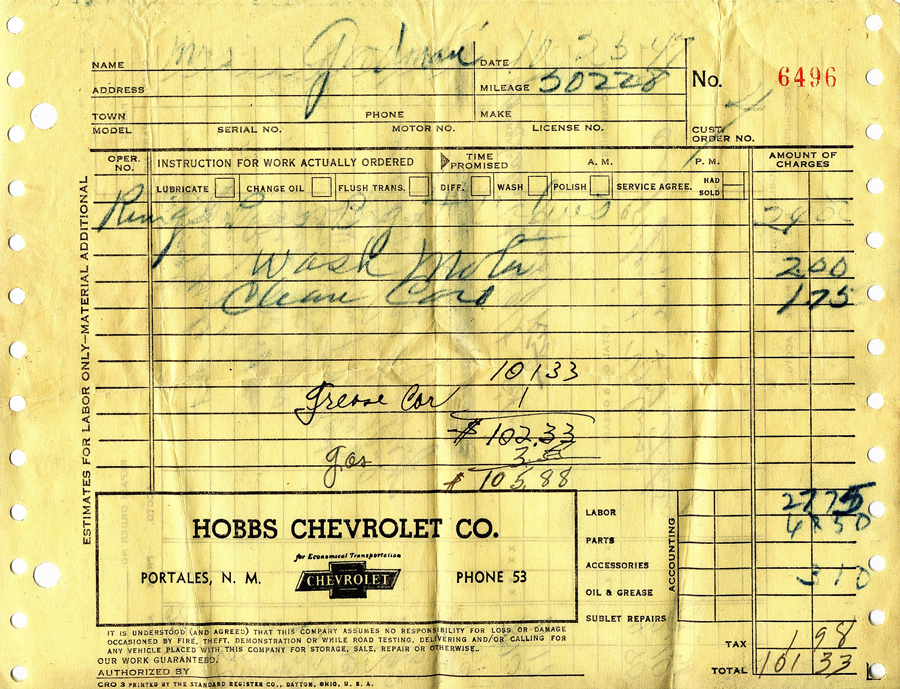 NAME Mrs Goodman DATE 10 25 47
ADDRESS MILEAGE 30228 No. 6496
TOWN PHONE MAKE
MODEL SERIAL NO. MOTOR NO. LICENSE NO. CUST. ORDER NO.
OPER. NO. INSTRUCTION FOR WORK ACTUALLY ORDERED TIME PROMISED A. M. P. M. AMOUNT OF CHARGES
LUBRICATE CHANGE OIL FLUSH TRANS. DIFF. WASH POLISH SERVICE AGREE. HAD SOLD
Rings
Wash Motor 2.00
Clean Car 1 75
10133
Grease Car 1
$ 102.33
gas
$ 105.88
ESTIMATES FOR LABOR ONLY—MATERIAL ADDITIONAL
HOBBS CHEVROLET CO.
for Economical Transportation
CHEVROLET
PORTALES, N. M. PHONE 53
ACCOUNTING
LABOR 27 75
PARTS
ACCESSORIES
OIL & GREASE 3 10
SUBLET REPAIRS
TAX 1 98
TOTAL 101 33
IT IS UNDERSTOOD (AND AGREED) THAT THIS COMPANY ASSUMES NO RESPONSIBILITY FOR LOSS OR DAMAGE
OCCASIONED BY FIRE, THEFT, DEMONSTRATION OR WHILE ROAD TESTING, DELIVERING AND/OR CALLING FOR
ANY VEHICLE PLACED WITH THIS COMPANY FOR STORAGE, SALE, REPAIR OR OTHERWISE.
OUR WORK GUARANTEED.
AUTHORIZED BY
CRO 3 PRINTED BY THE STANDARD REGISTER CO., DAYTON, OHIO, U. S. A.